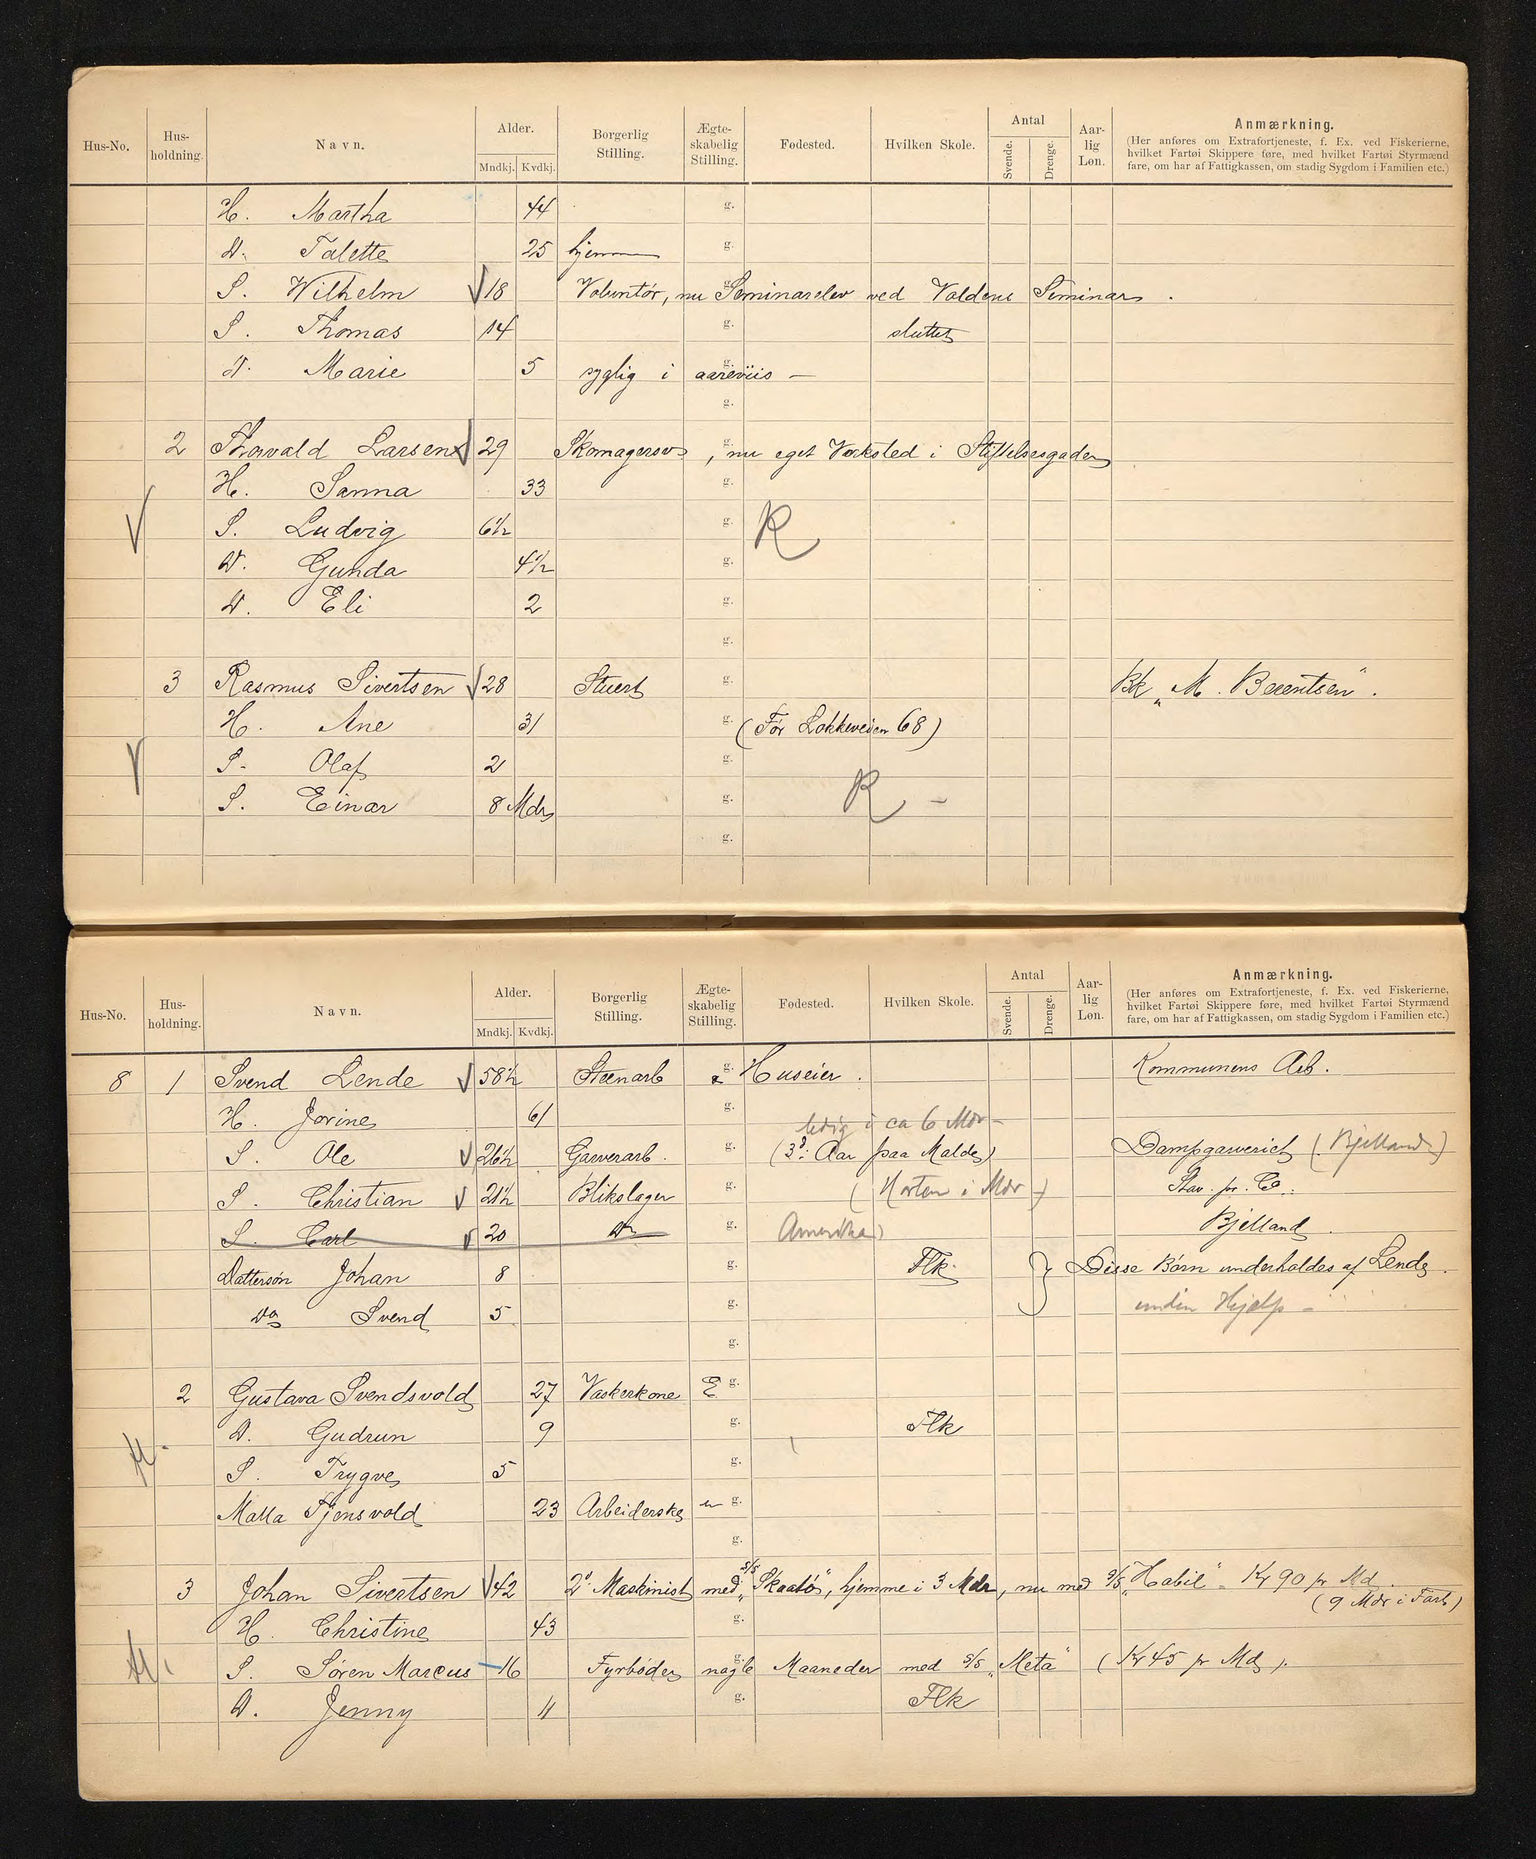 Hus-No. Hus-holdning. Navn. Alder. Mndkj. Kvdkj. Borgerlig Stilling. Ægte-skabelig Stilling. Fødested. Hvilken Skole. Antal Svende. Drenge. Aar-lig Løn. Anmærkning.
(Her anføres om Extrafortjeneste, f. Ex. ved Fiskerierne,
hvilket Fartøi Skippere føre, med hvilket Fartøi Styrmænd
fare, om har af Fattigkassen, om stadig Sygdom i Familien etc.)
H. Martha 44 g.
D. Talette 25 hjemme g.
S. Wilhelm 18 Voluntør, nu Seminarelev ved Voldens Seminar. g.
S. Thomas 14 g. sluttet
D. Marie 5 syglig i aareviis — g.
g.
2 Thorvald Larsen 29 Skomagersv, nu eget Værksted i Stiftelsesgaden g.
H. Sanna 33 g.
S. Ludvig 6½ g. R
D. Gunda 4½ g.
D. Eli 2 g.
g.
3 Rasmus Sivertsen 28 Stuert g. Bk „M. Berentsen".
H. Ane 31 g. (Før Løkkeveien 68)
S. Olaf 2 g.
S. Einar 8 Mdr g. R —
g.
Hus-No. Hus-holdning. Navn. Alder. Mndkj. Kvdkj. Borgerlig Stilling. Ægte-skabelig Stilling. Fødested. Hvilken Skole. Antal Svende. Drenge. Aar-lig Løn. Anmærkning.
(Her anføres om Extrafortjeneste, f. Ex. ved Fiskerierne,
hvilket Fartøi Skippere føre, med hvilket Fartøi Styrmænd
fare, om har af Fattigkassen, om stadig Sygdom i Familien etc.)
8 1 Svend Lende 58½ Steenarb g. Huseier. Kommunens Arb.
H. Jorine 61 g. ledig i ca 6 Mdr —
S. Ole 26½ Garverarb. g. (3d: Aar paa Malde) Dampgarveriet (Bjelland)
S. Christian 21½ Blikslager g. (Horten i Mdr) Stav. pr. Co.
S. Carl 20 Do g. Amerika) Bjelland.
Dattersøn Johan 8 g. Flk. } Disse Børn underholdes af Lende.
do Svend 5 g. uden Hjælp —
g.
2 Gustava Svendsvold 27 Vaskerkone E g.
D. Gudrun 9 g. Flk
S. Trygve 5 g.
Malla Tjensvold 23 Arbeiderske u g.
g.
3 Johan Sivertsen 42 2d Maskinist med S/S „Skaatø", hjemme i 3 Mdr, nu med S/S „Habil" Kr 90 pr Md.
(9 Mdr i Fart)
H. Christine 43 g.
S. Søren Marcus 16 Fyrbøder nogle Maaneder med S/S „Meta" (Kr 45 pr Md). g.
D. Jenny 11 g. Flk